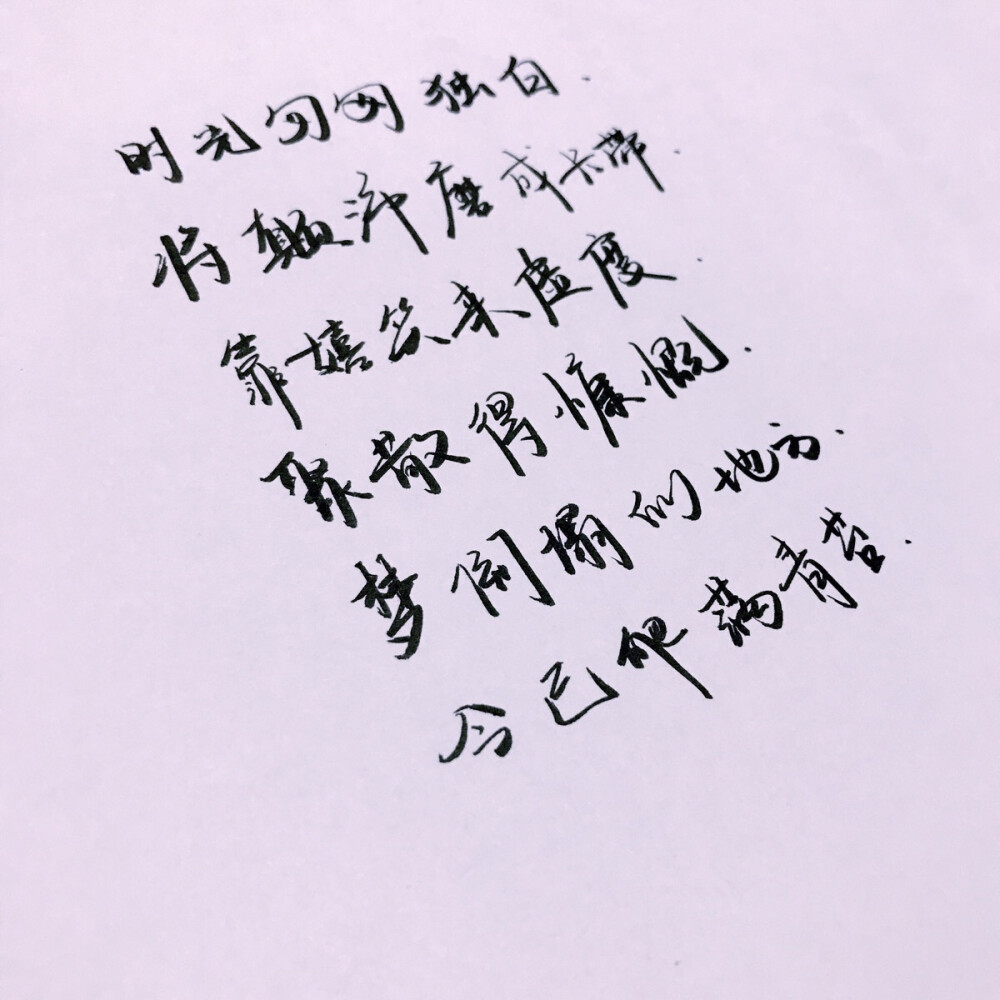 时光匆匆独白.
将颠沛磨成卡带.
靠嬉笑来虚度.
聚散得慷慨.
梦倒塌的地方.
今已爬满青苔.